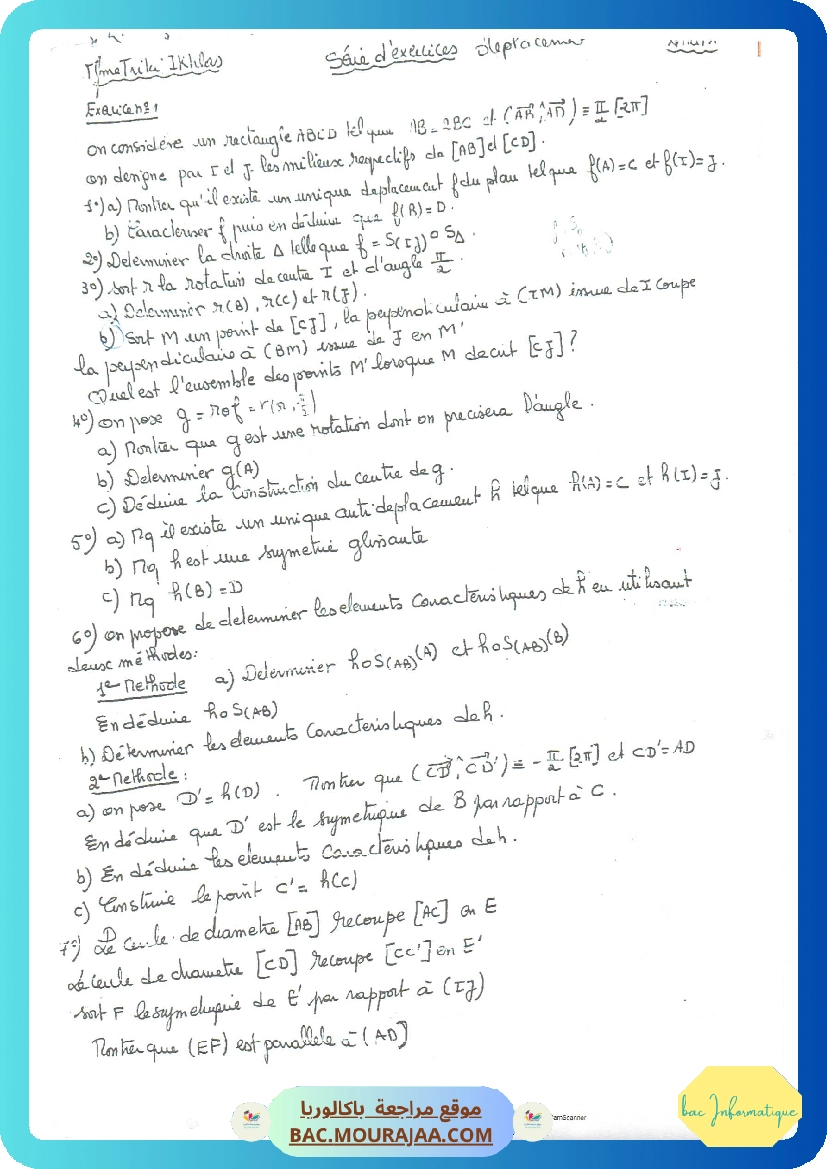 Mme Triki Ikhlas
Série d'exercices déplacement
Exercice n°1
on considère un rectangle ABCD tel que AB = 2BC et (AB, AD) ≡ π/2 [2π]
on designe par I et J les milieux respectifs de [AB] et [CD].
1°) a) Montrer qu'il existe un unique deplacement f du plan tel que f(A)=C et f(I)=J.
b) Caracteriser f puis en déduire que f(B)=D.
2°) Determiner la droite Δ telle que f = S(IJ) o SΔ
3°) soit r la rotation de centre I et d'angle π/2.
a) Determiner r(B), r(C) et r(J).
b) Soit M un point de [CJ], la perpendiculaire à (IM) issue de I coupe
la perpendiculaire à (BM) issue de J en M'
Quel est l'ensemble des points M' lorsque M decrit [CJ]?
4°) on pose g = rof = r(Ω, π/2)
a) Montrer que g est une rotation dont on precisera l'angle.
b) Determiner g(A)
c) Déduire la construction du centre de g.
5°) a) Mq il existe un unique anti-deplacement h tel que h(A)=C et h(I)=J.
b) Mq h est une symetrie glissante
c) Mq h(B)=D
6°) on propose de determiner les elements Caractéristiques de h en utilisant
deux méthodes:
1e Methode a) Determiner hoS(AB)(A) et hoS(AB)(B)
En déduire hoS(AB)
b) Déterminer les elements Caracteristiques de h.
2e Methode:
a) on pose D'= h(D). Montrer que (CD, CD') ≡ -π/2 [2π] et CD'=AD
En déduire que D' est le symetrique de B par rapport à C.
b) En déduire les elements Caractéristiques de h.
c) Construire le point C'= h(C)
7°) Le Cercle de diametre [AB] recoupe [AC] en E
Le cercle de diametre [CD] recoupe [CC'] en E'
soit F le symetrique de E' par rapport à (IJ)
Montrer que (EF) est parallele à (AD)
CamScanner
bac Informatique
موقع مراجعة باكالوريا
BAC.MOURAJAA.COM